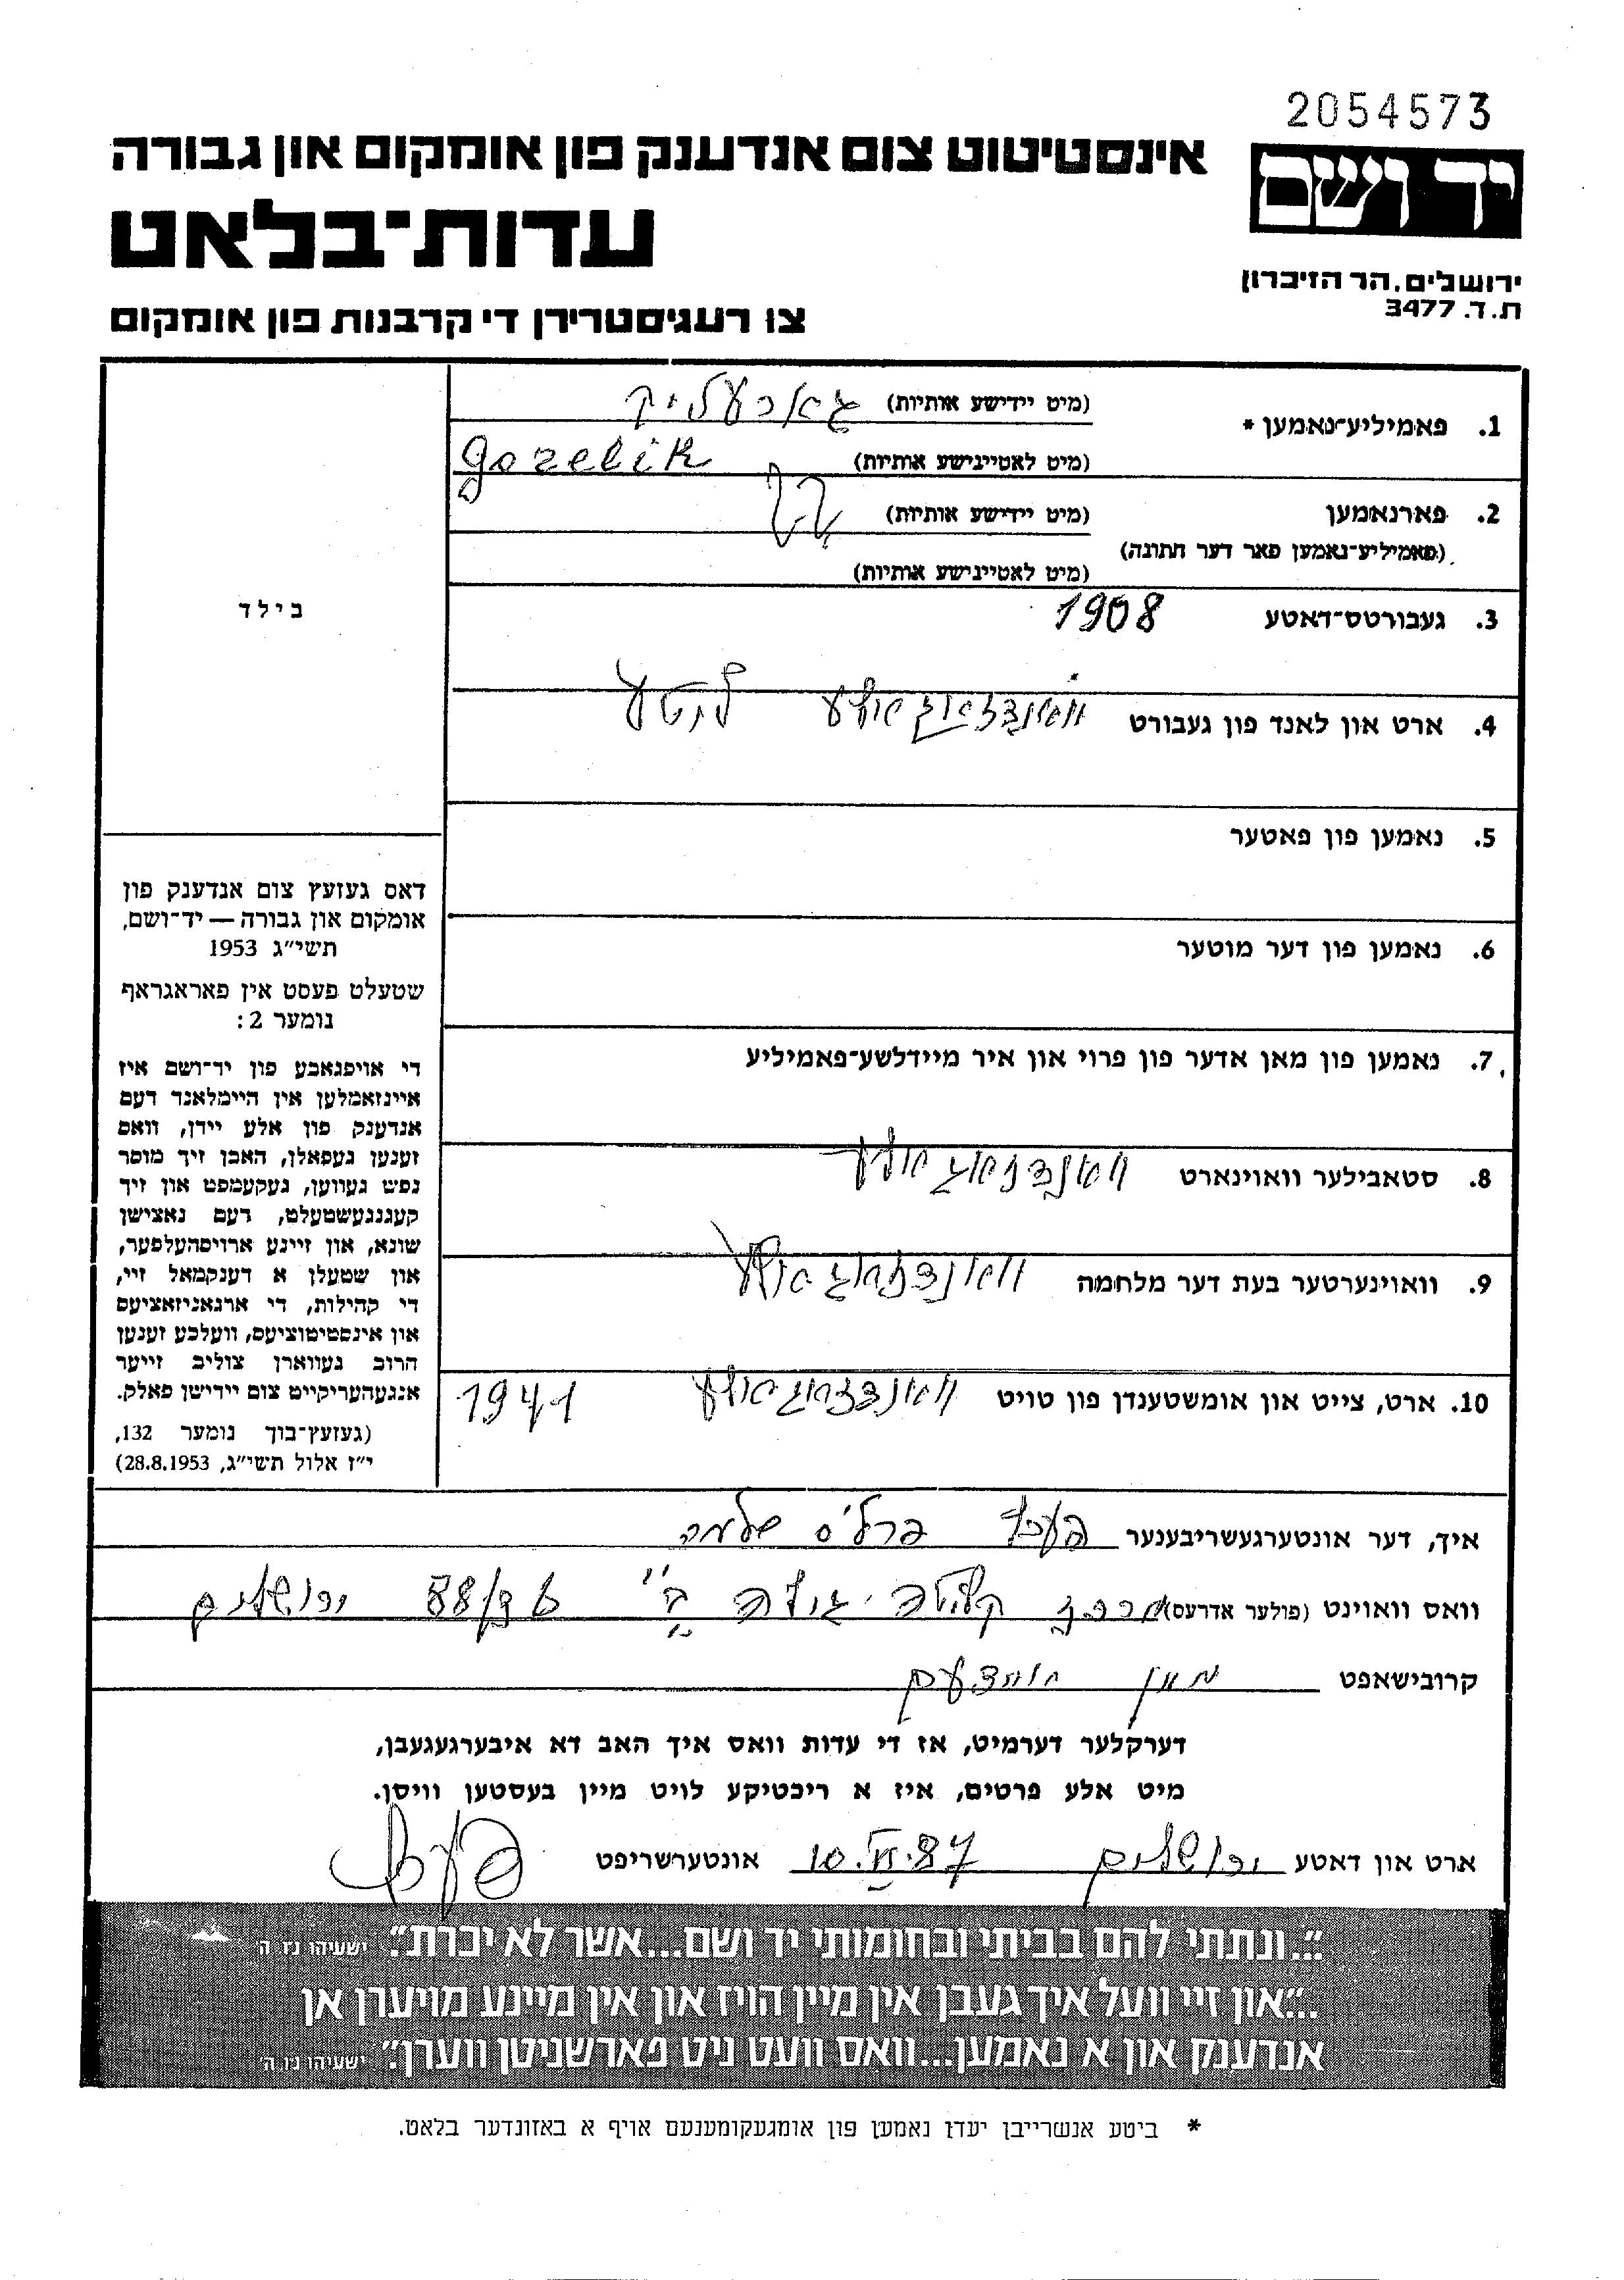 2054573
אינסטיטוט צום אנדענק פון אומקום און גבורה
יד ושם
עדות־בלאט
ירושלים, הר הזיכרון
ת.ד. 3477
צו רעגיסטרירן די קרבנות פון אומקום
1. פאמיליע־נאמען * (מיט יידישע אותיות) גארעליק
(מיט לאטיינישע אותיות) gorelik
2. פארנאמען (מיט יידישע אותיות)
(פאמיליע־נאמען פאר דער חתונה)
(מיט לאטיינישע אותיות)
בילד
3. געבורטס־דאטע 1908
4. ארט און לאנד פון געבורט וואנדזאגאלע ליטע
5. נאמען פון פאטער
6. נאמען פון דער מוטער
7. נאמען פון מאן אדער פון פרוי און איר מיידלשע־פאמיליע
8. סטאבילער וואוינארט וואנדזאגאלע
9. וואוינערטער בעת דער מלחמה וואנדזאגאלע
10. ארט, צייט און אומשטענדן פון טויט וואנדזאגאלע 1941
דאס געזעץ צום אנדענק פון
אומקום און גבורה — יד־ושם,
תשי״ג 1953
שטעלט פעסט אין פאראגראף
נומער 2:
די אויפגאבע פון יד־ושם איז
איינזאמלען אין היימלאנד דעם
אנדענק פון אלע יידן, וואס
זענען געפאלן, האבן זיך מוסר
נפש געווען, געקעמפט און זיך
קעגנגעשטעלט, דעם נאצישן
שונא, און זיינע ארויסהעלפער,
און שטעלן א דענקמאל זיי,
די קהילות, די ארגאניזאציעס
און אינסטיטוציעס, וועלכע זענען
חרוב געווארן צוליב זייער
אנגעהעריקייט צום יידישן פאלק.
(געזעץ־בוך נומער 132,
י״ז אלול תשי״ג, 28.8.1953)
איך, דער אונטערגעשריבענער פרל'ס שלמה
וואס וואוינט (פולער אדרעס) מרכז קליטה גילה ב' 88/36 ירושלים
קרובישאפט
דערקלער דערמיט, אז די עדות וואס איך האב דא איבערגעגעבן,
מיט אלע פרטים, איז א ריכטיקע לויט מיין בעסטען וויסן.
ארט און דאטע ירושלים 10.VI.87 אונטערשריפט
״..ונתתי להם בביתי ובחומותי יד ושם...אשר לא יכרת״. ישעיהו נו ה
..״און זיי וועל איך געבן אין מיין הויז און אין מיינע מויערן אן
אנדענק און א נאמען...וואס וועט ניט פארשניטן ווערן״. ישעיהו נו ה'
* ביטע אנשרייבן יעדן נאמען פון אומגעקומענעם אויף א באזונדער בלאט.